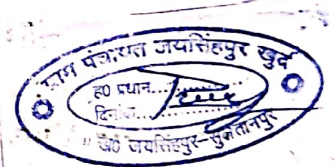 ग्राम पंचायत जयसिंहपुर खुर्द
ह0 प्रधान....
दिनांक....
वि0 ख0 जयसिंहपुर-सुलतानपुर